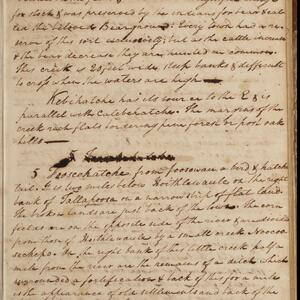 for stock & was preserved by the indians for bear & called
the beloved Bear ground; Every town had a re-
serve of this sort exclusively; but as the cattle increase
& the bear decrease they are hunted in common.
This creek is 20 feet wide steep banks & difficult
to cross when the waters are high.
Kebihatche has its source to the E & is
parallel with Calebehatche. The margins of the
creek rich flats bordering pine forest or post oak
hills
5
5 Foosce hatche from foosowau a bird & hatche
tail. It is two miles below Hoithlewaule on the right
bank of Tallapoosa on a narrow strip of flat land.
The broken lands are just back of the town. The corn
fields are on the opposite side of the river & are divided
from those of Hoithlewaule by a small creek Noocoo-
sechepo. On the right bank of this little creek half a
mile from the river are the remains of a ditch which
surrounded a fortification & back of this for a mile
is the appearance of old settlements and back of these